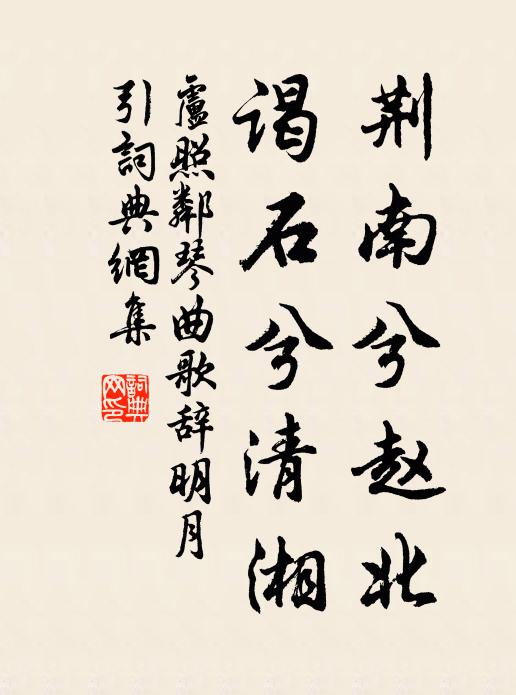 荆南兮赵北
谒石兮清湘
盧照鄰琴曲歌辞明月
引詞典網集
詞典
网印